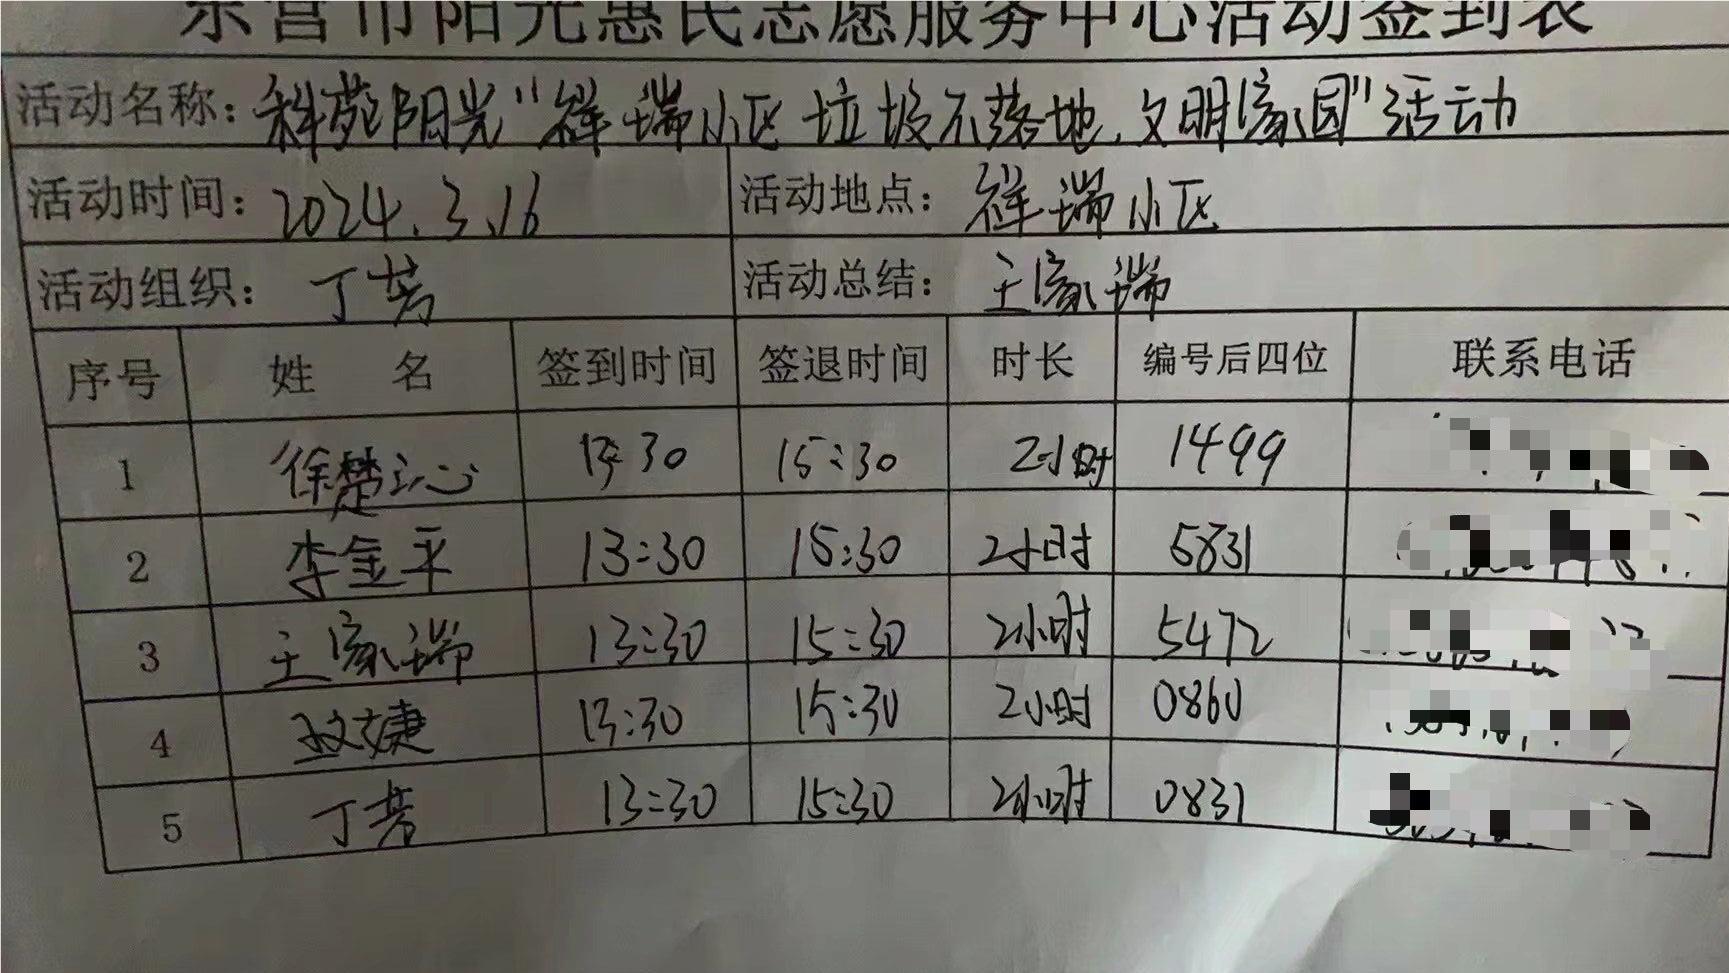 东营市阳光惠民志愿服务中心活动签到表
活动名称: 科苑阳光"祥瑞小区垃圾不落地,文明家园"活动
活动时间: 2024.3.16 活动地点: 祥瑞小区
活动组织: 丁芳 活动总结: 王家瑞
序号 姓 名 签到时间 签退时间 时长 编号后四位 联系电话
1 徐楚沁 13:30 15:30 2小时 1499
2 李金平 13:30 15:30 2小时 5831
3 王家瑞 13:30 15:30 2小时 5472
4 婕 13:30 15:30 2小时 0860
5 丁芳 13:30 15:30 2小时 0831